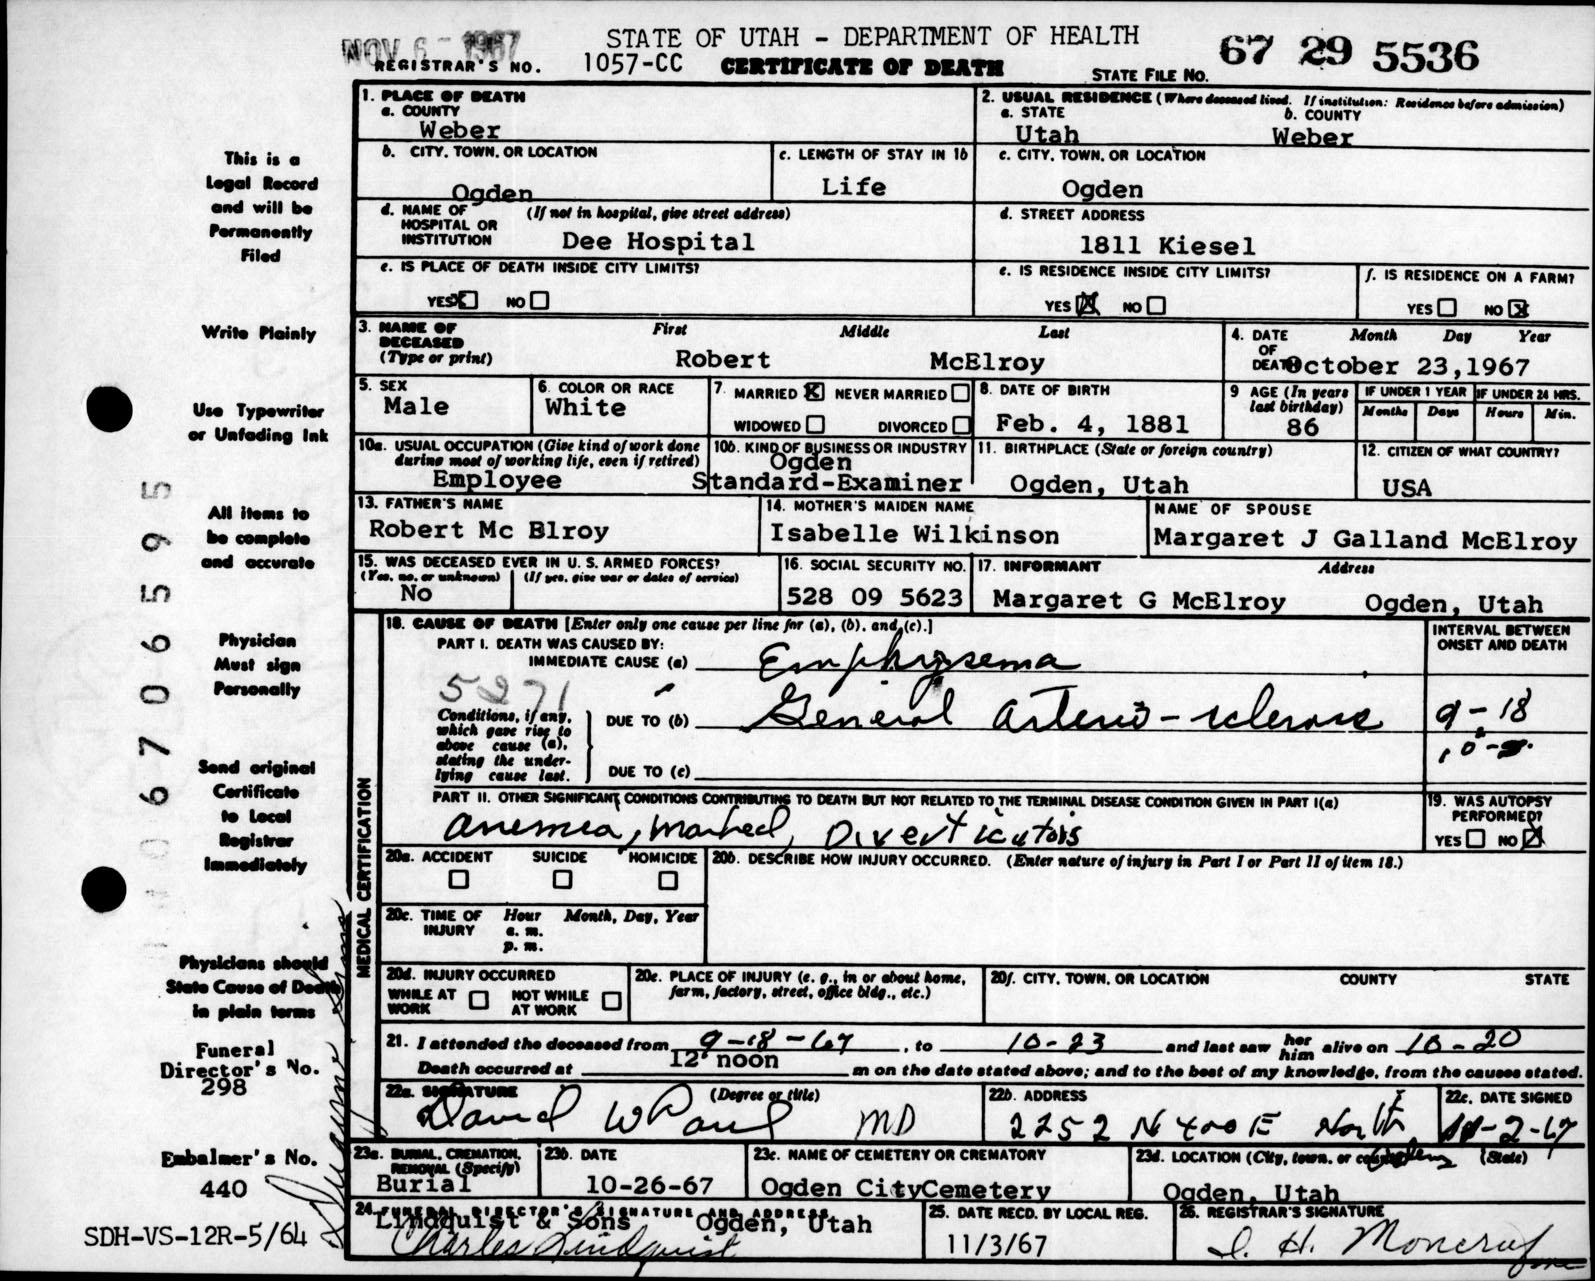 NOV 6 - 1967
STATE OF UTAH - DEPARTMENT OF HEALTH
REGISTRAR'S NO. 1057-CC CERTIFICATE OF DEATH STATE FILE NO. 67 29 5536
1. PLACE OF DEATH
a. COUNTY
Weber
2. USUAL RESIDENCE (Where deceased lived. If institution: Residence before admission)
a. STATE b. COUNTY
Utah Weber
b. CITY, TOWN, OR LOCATION
Ogden
c. LENGTH OF STAY IN 1b
Life
c. CITY, TOWN, OR LOCATION
Ogden
d. NAME OF HOSPITAL OR INSTITUTION (If not in hospital, give street address)
Dee Hospital
d. STREET ADDRESS
1811 Kiesel
e. IS PLACE OF DEATH INSIDE CITY LIMITS?
YES X NO
e. IS RESIDENCE INSIDE CITY LIMITS?
YES X NO
f. IS RESIDENCE ON A FARM?
YES NO X
3. NAME OF DECEASED (Type or print) First Middle Last
Robert McElroy
4. DATE OF DEATH Month Day Year
October 23,1967
5. SEX
Male
6. COLOR OR RACE
White
7. MARRIED X NEVER MARRIED
WIDOWED DIVORCED
8. DATE OF BIRTH
Feb. 4, 1881
9 AGE (In years last birthday)
86
IF UNDER 1 YEAR IF UNDER 24 HRS.
Months Days Hours Min.
10a. USUAL OCCUPATION (Give kind of work done during most of working life, even if retired)
Employee
10b. KIND OF BUSINESS OR INDUSTRY
Ogden
Standard-Examiner
11. BIRTHPLACE (State or foreign country)
Ogden, Utah
12. CITIZEN OF WHAT COUNTRY?
USA
13. FATHER'S NAME
Robert Mc Blroy
14. MOTHER'S MAIDEN NAME
Isabelle Wilkinson
NAME OF SPOUSE
Margaret J Galland McElroy
15. WAS DECEASED EVER IN U. S. ARMED FORCES?
(Yes, no, or unknown) (If yes, give war or dates of service)
No
16. SOCIAL SECURITY NO.
528 09 5623
17. INFORMANT Address
Margaret G McElroy Ogden, Utah
MEDICAL CERTIFICATION
18. CAUSE OF DEATH [Enter only one cause per line for (a), (b), and (c).]
INTERVAL BETWEEN ONSET AND DEATH
PART I. DEATH WAS CAUSED BY:
IMMEDIATE CAUSE (a) Emphysema
5271
Conditions, if any, which gave rise to above cause (a), stating the underlying cause last.
DUE TO (b) General Arterio-sclerosis 9-18
DUE TO (c)
PART II. OTHER SIGNIFICANT CONDITIONS CONTRIBUTING TO DEATH BUT NOT RELATED TO THE TERMINAL DISEASE CONDITION GIVEN IN PART I(a)
Anemia, marked, Diverticulosis
19. WAS AUTOPSY PERFORMED?
YES NO X
20a. ACCIDENT SUICIDE HOMICIDE
20b. DESCRIBE HOW INJURY OCCURRED. (Enter nature of injury in Part I or Part II of item 18.)
20c. TIME OF INJURY Hour Month, Day, Year
a. m.
p. m.
20d. INJURY OCCURRED
WHILE AT WORK NOT WHILE AT WORK
20e. PLACE OF INJURY (e. g., in or about home, farm, factory, street, office bldg., etc.)
20f. CITY, TOWN, OR LOCATION COUNTY STATE
21. I attended the deceased from 9-18-67, to 10-23 and last saw her him alive on 10-20
Death occurred at 12 noon m on the date stated above; and to the best of my knowledge, from the causes stated.
22a. SIGNATURE (Degree or title)
David W Paul MD
22b. ADDRESS
2252 N 400 E North Ogden
22c. DATE SIGNED
11-2-67
23a. BURIAL, CREMATION, REMOVAL (Specify)
Burial
23b. DATE
10-26-67
23c. NAME OF CEMETERY OR CREMATORY
Ogden CityCemetery
23d. LOCATION (City, town, or county) (State)
Ogden, Utah
24. FUNERAL DIRECTOR'S SIGNATURE AND ADDRESS
Lindquist & Sons Ogden, Utah
Charles Lindquist
25. DATE RECD. BY LOCAL REG.
11/3/67
26. REGISTRAR'S SIGNATURE
I. H. Moncrief
This is a
Legal Record
and will be
Permanently
Filed
Write Plainly
Use Typewriter
or Unfading Ink
All items to
be complete
and accurate
Physician
Must sign
Personally
Send original
Certificate
to Local
Registrar
Immediately
Physicians should
State Cause of Death
in plain terms
Funeral
Director's No.
298
Embalmer's No.
440
SDH-VS-12R-5/64